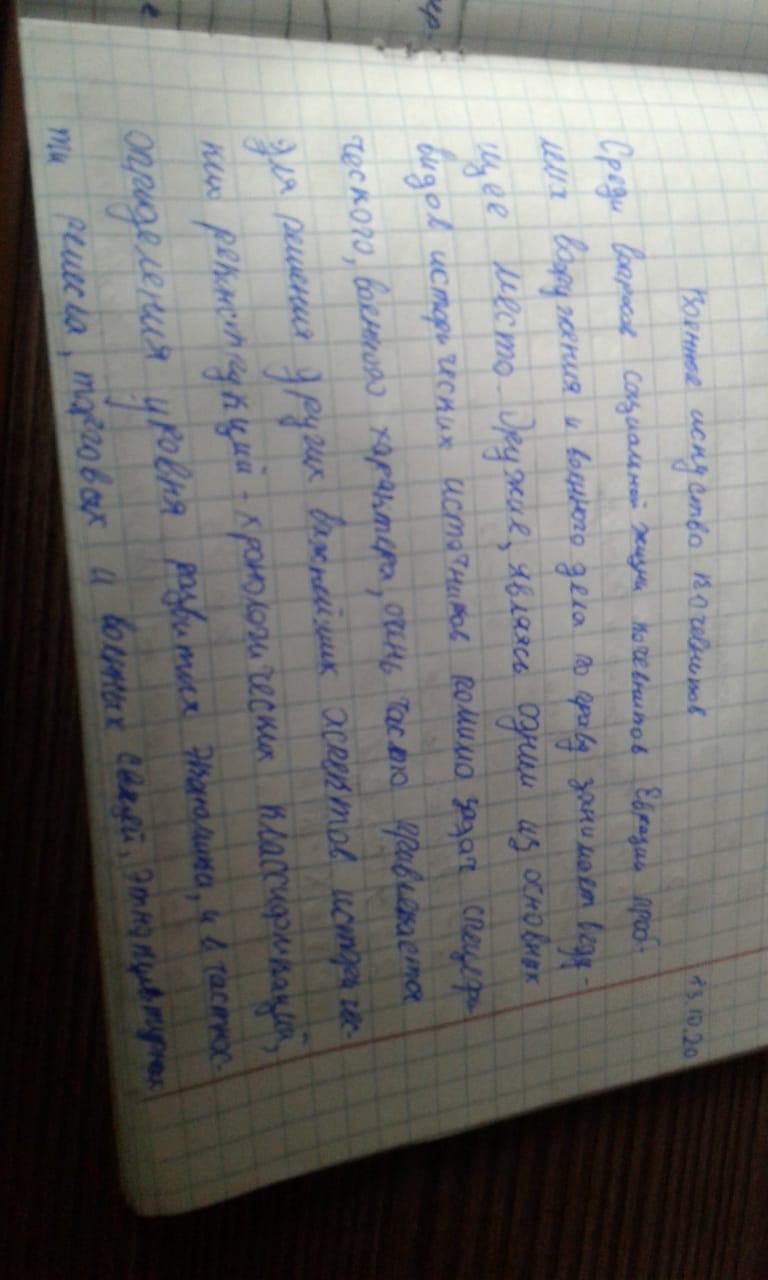 13.10.20
Военное искуство кочевников
Среди вопросов социальной жизни кочевников Евразии проб-
лема вооружения и военного дела по праву занимает веду-
щее место. Оружие, являясь одним из основных
видов исторических источников помимо задач специфи
ческого, военного характера, очень часто привлекается
для решения других важнейших аспектов историчес-
ких реконструкций - хронологических классификаций,
определения уровня развития экономики, и в частнос-
ти ремесла, торговых и военных связей, этнокультурных